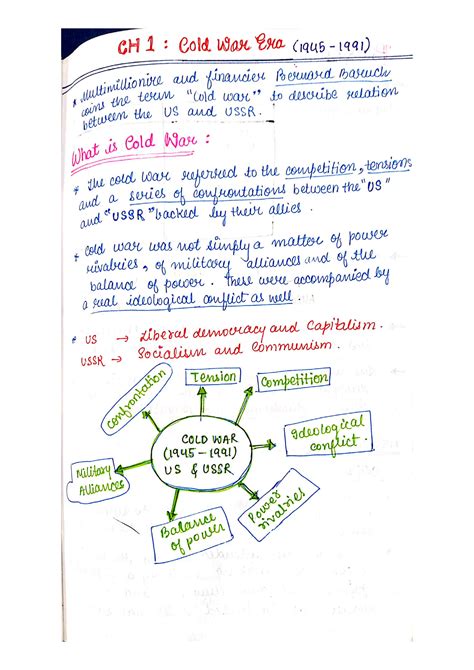 CH 1 : Cold War Era (1945-1991)
* Multimillionire and financier Bernard Baruch
coins the term "Cold war" to describe relation
between the US and USSR.
What is Cold War :
* The cold war referred to the competition, tensions
and a series of confrontations between the "US"
and "USSR" backed by their allies.
* Cold war was not simply a matter of power
rivalries, of military alliances and of the
balance of power. These were accompanied by
a real ideological conflict as well.
* US → Liberal democracy and Capitalism.
USSR → Socialism and Communism.
Confrontation
Tension
Competition
Ideological
conflict.
COLD WAR
(1945-1991)
US & USSR
Military
Alliances
Balance
of power
Power
rivalries